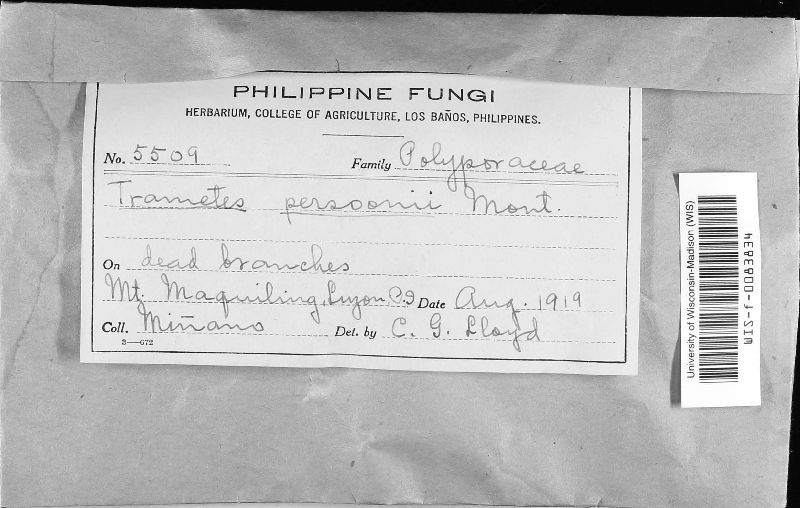 PHILIPPINE FUNGI
HERBARIUM, COLLEGE OF AGRICULTURE, LOS BAÑOS, PHILIPPINES.
No. 5509 Family Polyporaceae
Trametes persoonii Mont.
On dead branches
Mt. Maquiling, Luzon P.I Date Aug. 1919
Coll. Miñano Det. by C. G. Lloyd
3—672
University of Wisconsin-Madison (WIS)
WIS-f-0083834